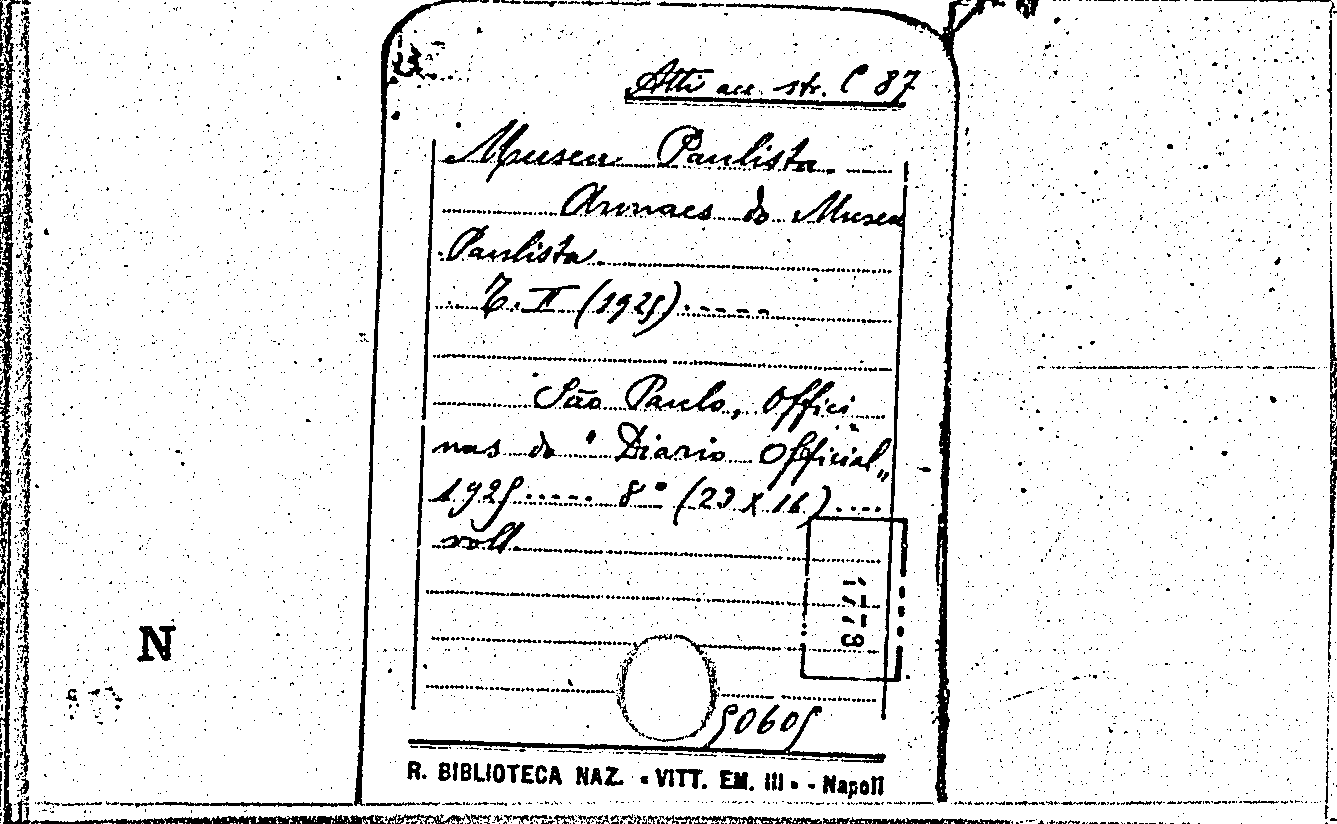 Atti acc. str. C 87
Museu Paulista.
Annaes do Museu
Paulista.
T. II (1925).-----
São Paulo, Offici„
nas do "Diario Official„
1925----- 8° (23 x 16)....
voll.
1778
N
50605
R. BIBLIOTECA NAZ. «VITT. EM. III» - Napoli